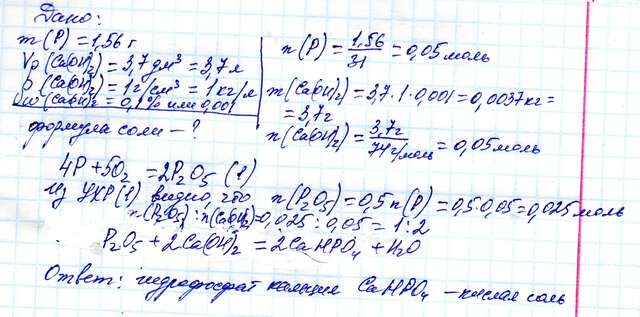 Дано:
m(P) = 1,56 г
Vр(Ca(OH)₂) = 3,7 дм³ = 3,7 л
ρ(Ca(OH)₂) = 1 г/см³ = 1 кг/л
w(Ca(OH)₂) = 0,1% или 0,001
формула соли - ?
n(P) = 1,56/31 = 0,05 моль
m(Ca(OH)₂) = 3,7·1·0,001 = 0,0037 кг =
= 3,7 г
n(Ca(OH)₂) = 3,7г/74 г/моль = 0,05 моль
4P + 5O₂ = 2P₂O₅ (1)
Из УХР(1) видно, что n(P₂O₅) = 0,5n(P) = 0,5·0,05 = 0,025 моль
n(P₂O₅) : n(Ca(OH)₂) = 0,025 : 0,05 = 1:2
P₂O₅ + 2Ca(OH)₂ = 2CaHPO₄ + H₂O
Ответ: гидрофосфат кальция CaHPO₄ – кислая соль